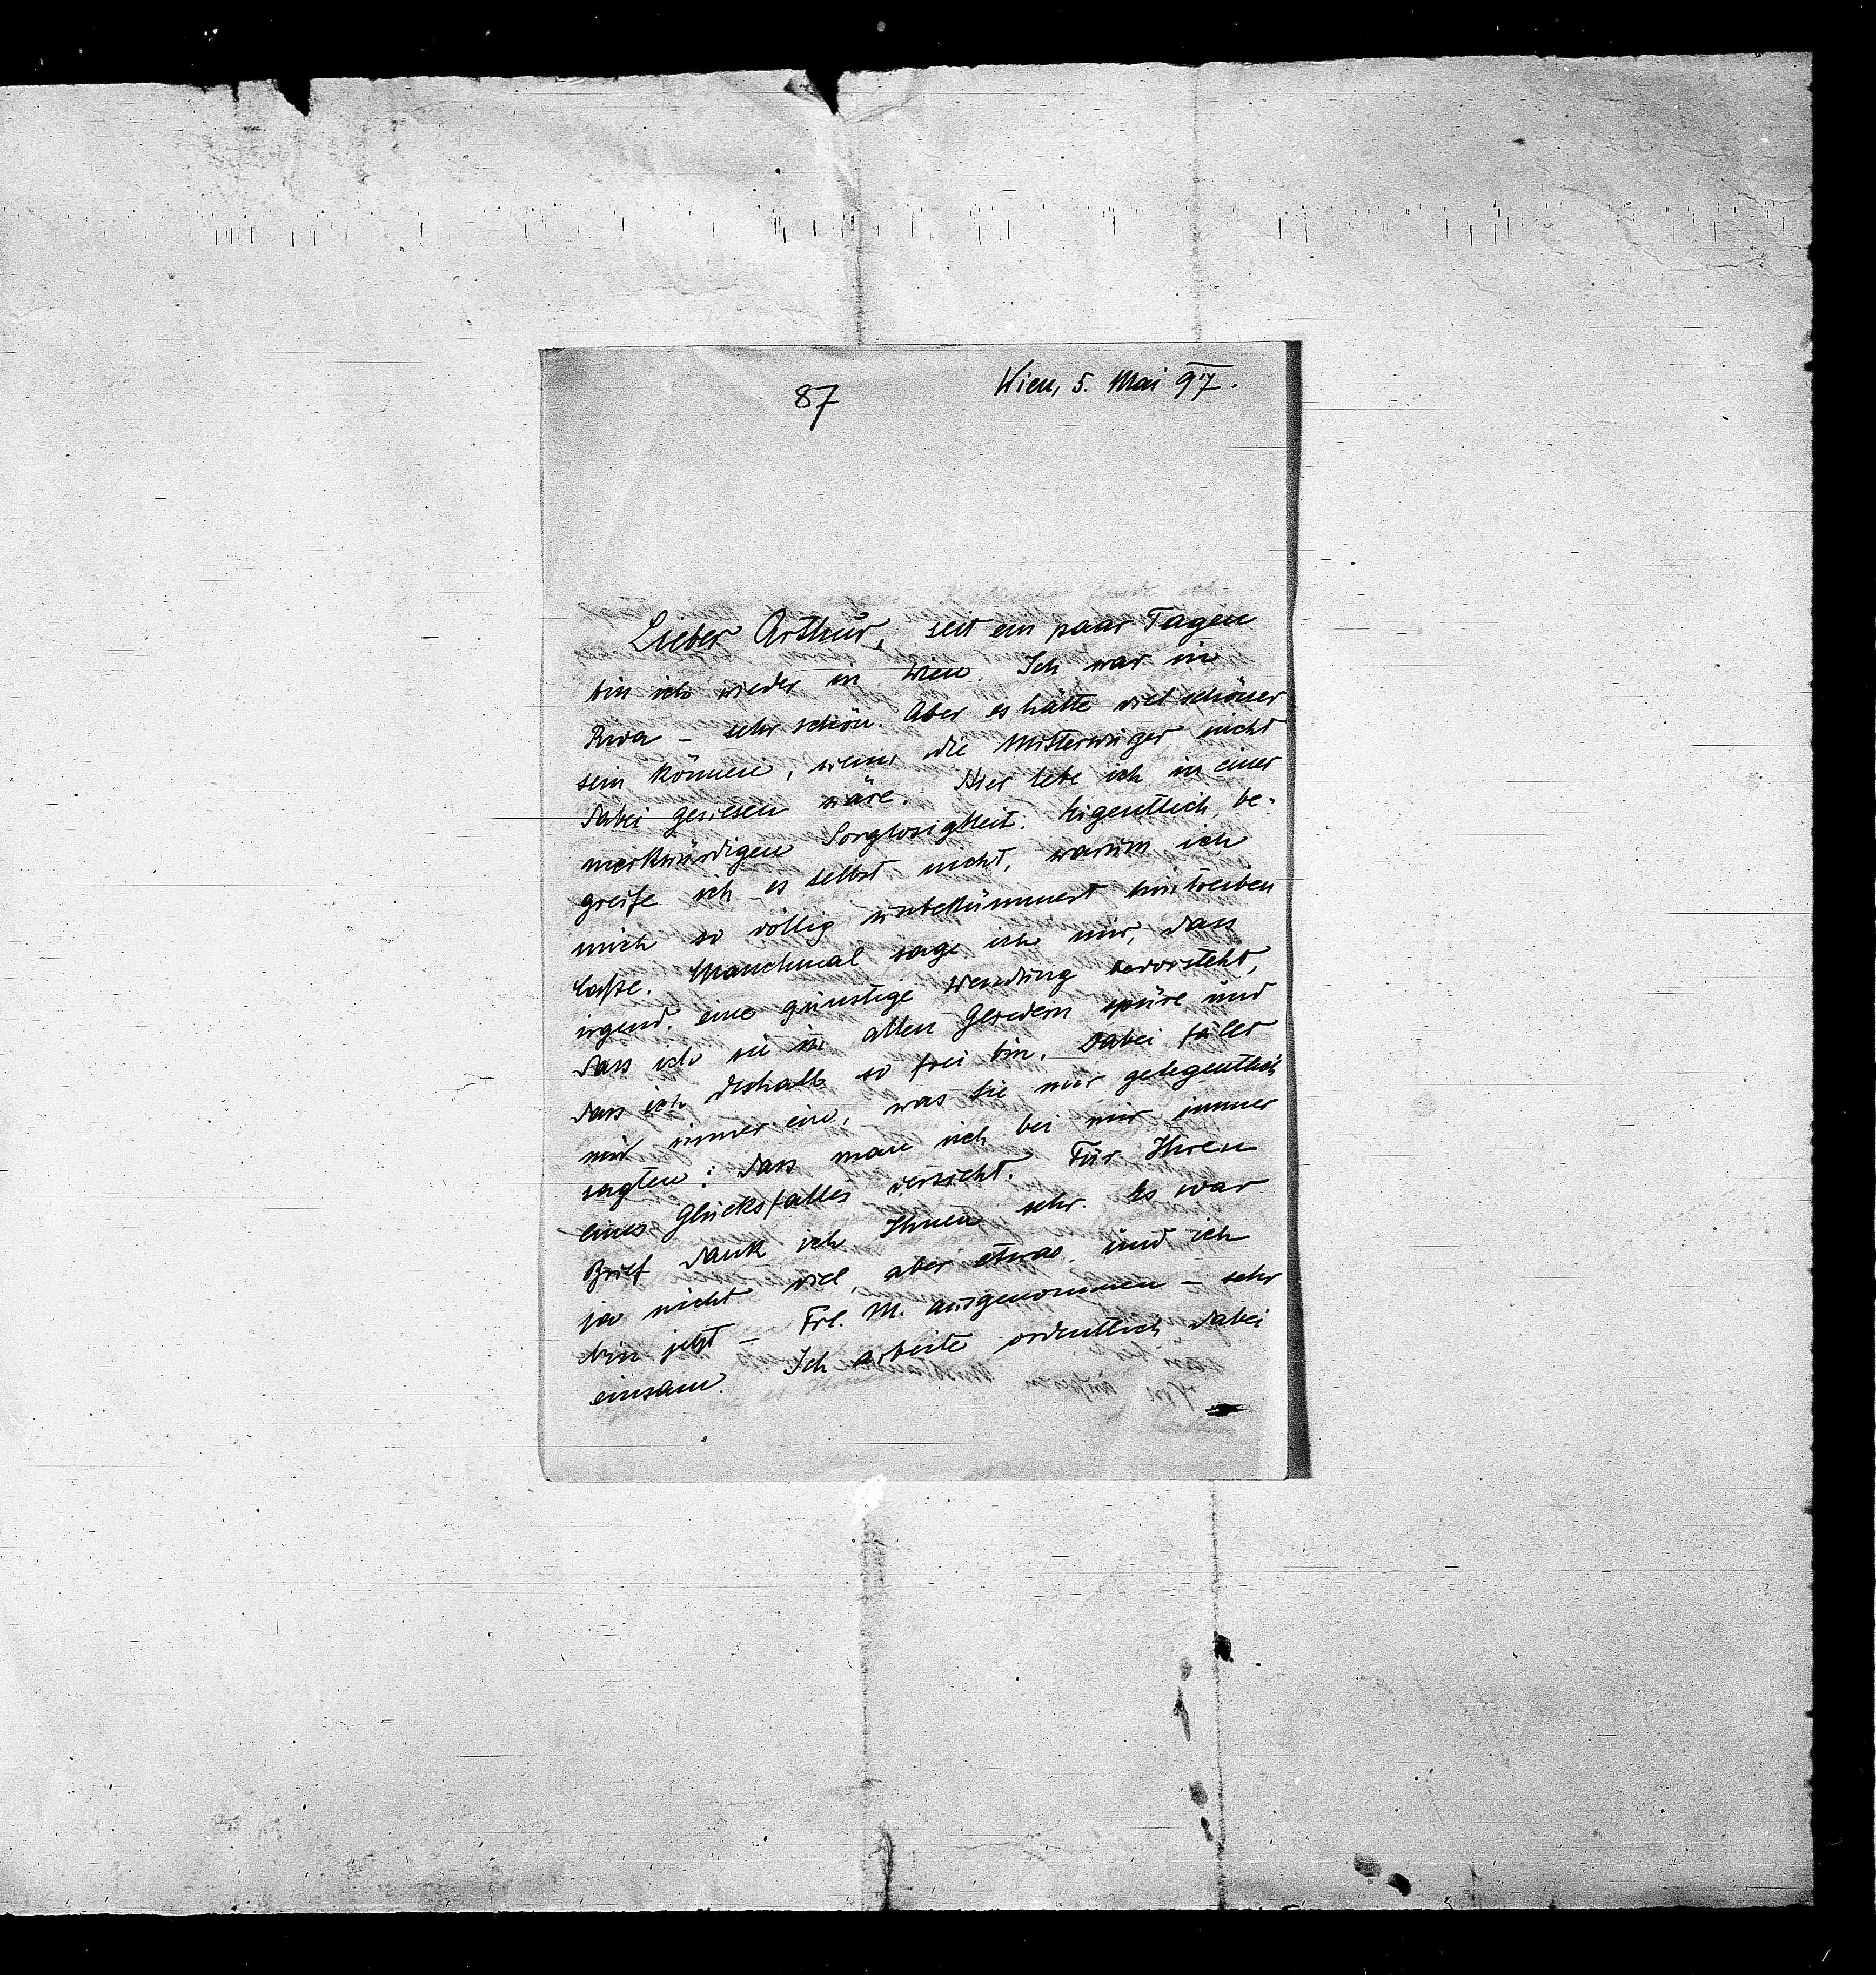 87
Wien, 5. Mai 97.
Lieber Arthur, seit ein paar Tagen
bin ich wieder in Wien. Ich war in
Riva – sehr schön. Aber es hätte viel schöner
sein können, wenn die Mitterwurzer nicht
dabei gewesen wäre. Hier lebe ich in einer
merkwürdigen Sorglosigkeit. Eigentlich be-
greife ich es selbst nicht, warum ich
mich so völlig unbekümmert hintreiben
laße. Manchmal sage ich mir, dass
irgend eine günstige Wendung bevorsteht,
dass ich sie in allen Gliedern spüre und
dass ich deshalb so frei bin. Dabei fällt
mir immer ein, was Sie mir gelegentlich
sagten: dass man sich bei mir immer
eines Glücksfalles versieht. Für Ihren
Brief dank ich Ihnen sehr. Es war
ja nicht viel, aber etwas, und ich
bin jetzt – Frl. M. ausgenommen – sehr
einsam. Ich arbeite ordentlich dabei